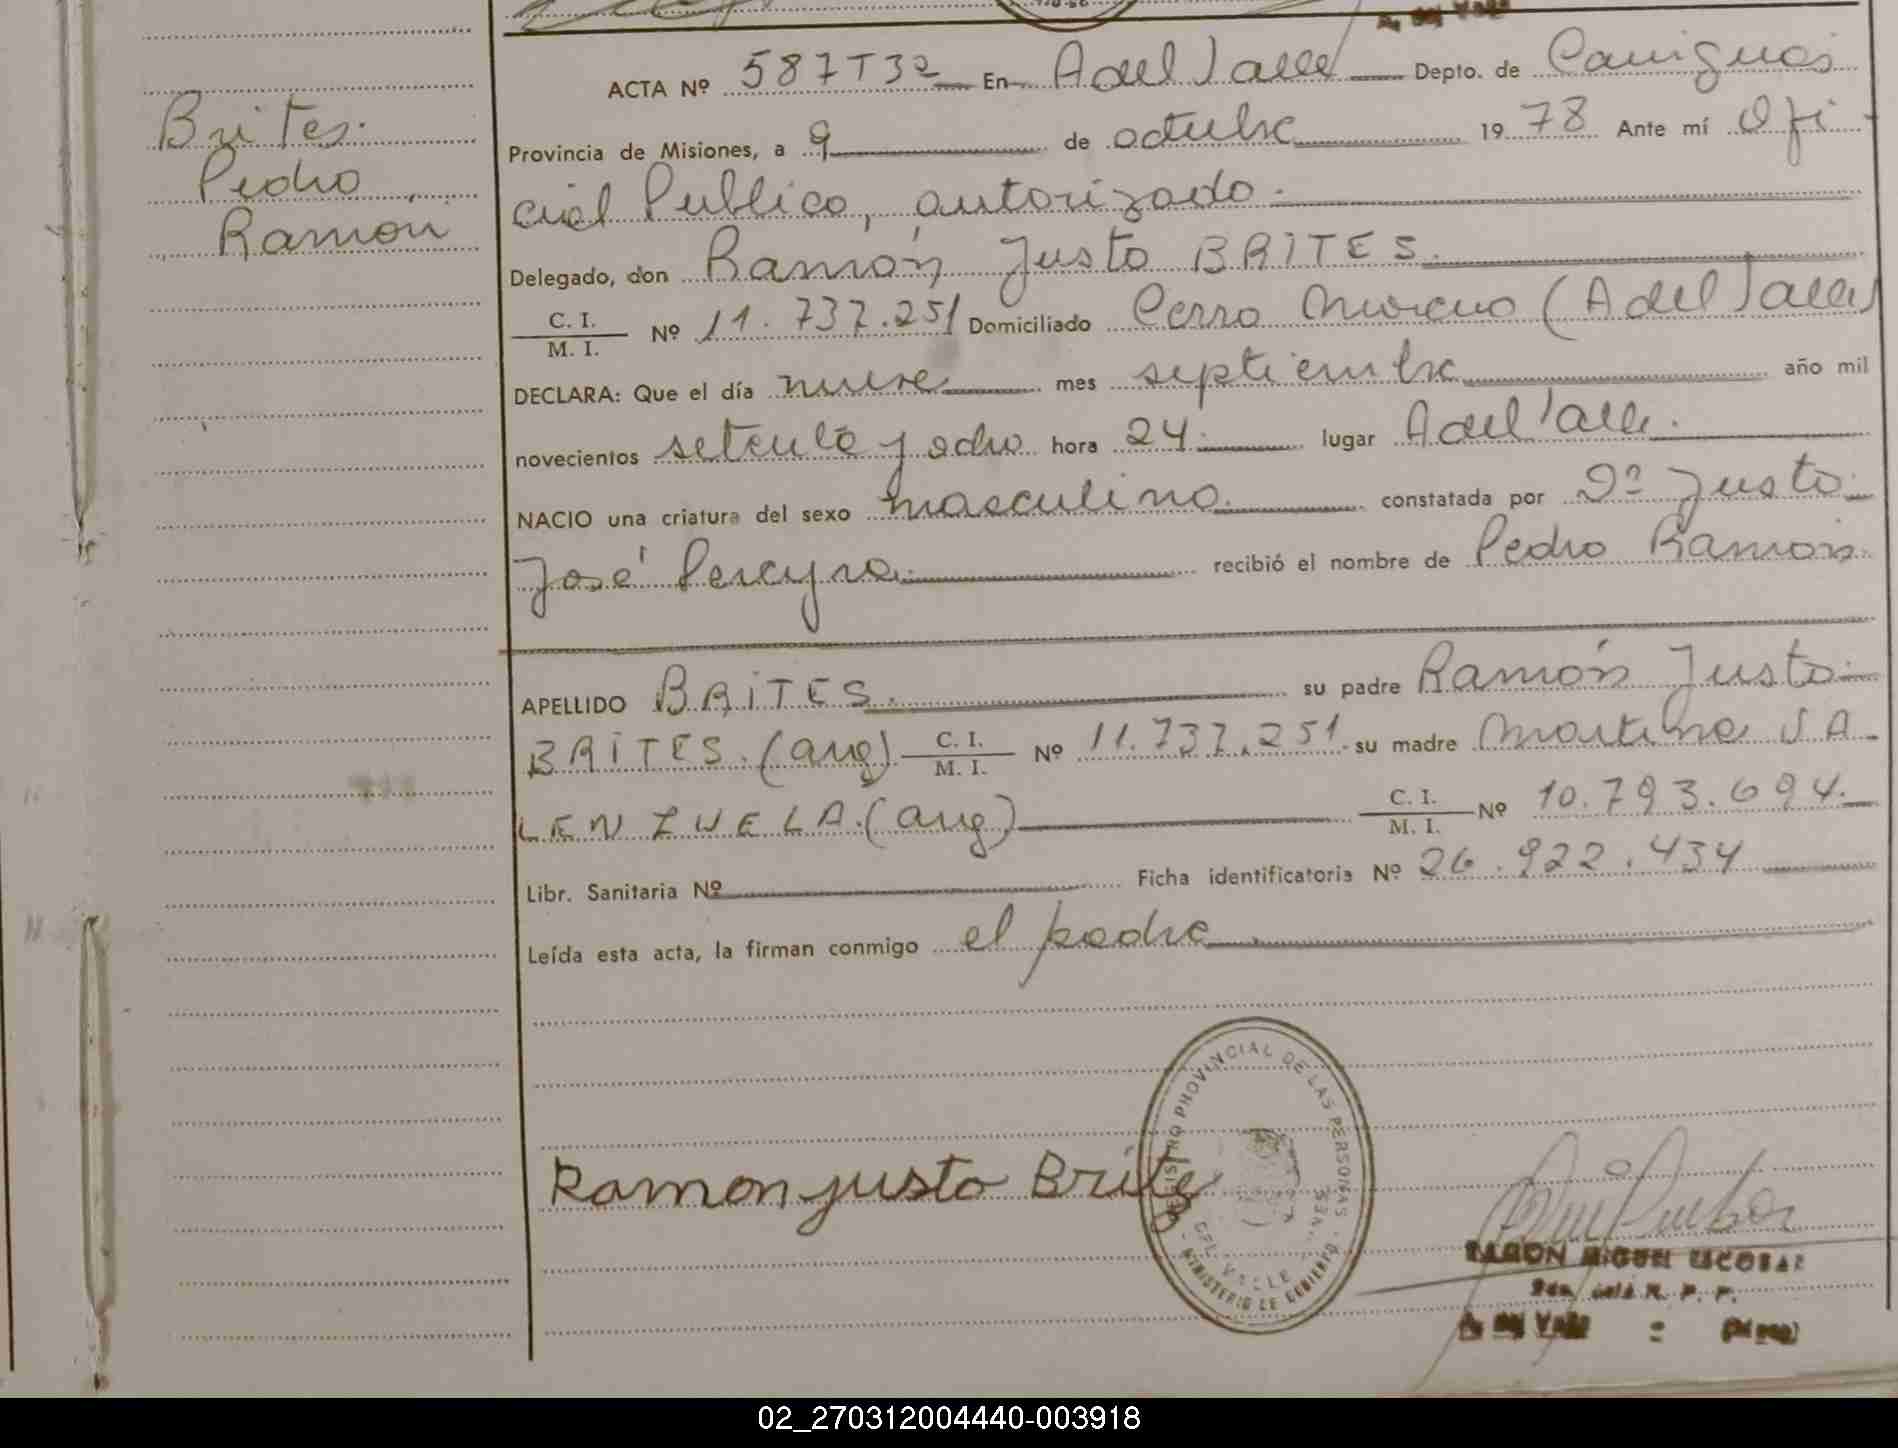 Brites
Pedro
Ramón
ACTA Nº 587 T 3º En A del Valle Depto. de Cainguás
Provincia de Misiones, a 9 de octubre 1978 Ante mí Ofi-
cial Publico, autorizado.
Delegado, don Ramón Justo BRITES.
C. I. / M. I. Nº 11.737.251 Domiciliado Cerro Moreno (A del Valle)
DECLARA: Que el día nueve mes septiembre año mil
novecientos setenta y ocho hora 24. lugar A del Valle.
NACIO una criatura del sexo masculino. constatada por Dº Justo
José Pereyra. recibió el nombre de Pedro Ramón
APELLIDO BRITES. su padre Ramón Justo
BRITES. (arg) C. I. / M. I. Nº 11.737.251 su madre Martina VA-
LENZUELA. (arg) C. I. / M. I. Nº 10.793.694.
Libr. Sanitaria Nº Ficha identificatoria Nº 26.922.434
Leída esta acta, la firman conmigo el padre
REGISTRO PROVINCIAL DE LAS PERSONAS
DEL VALLE
MINISTERIO DE GOBIERNO
Ramon justo Brites
RAMON MIGUEL ESCOBAR
R. P. P.
A. del Valle - (Mnes)
02_270312004440-003918